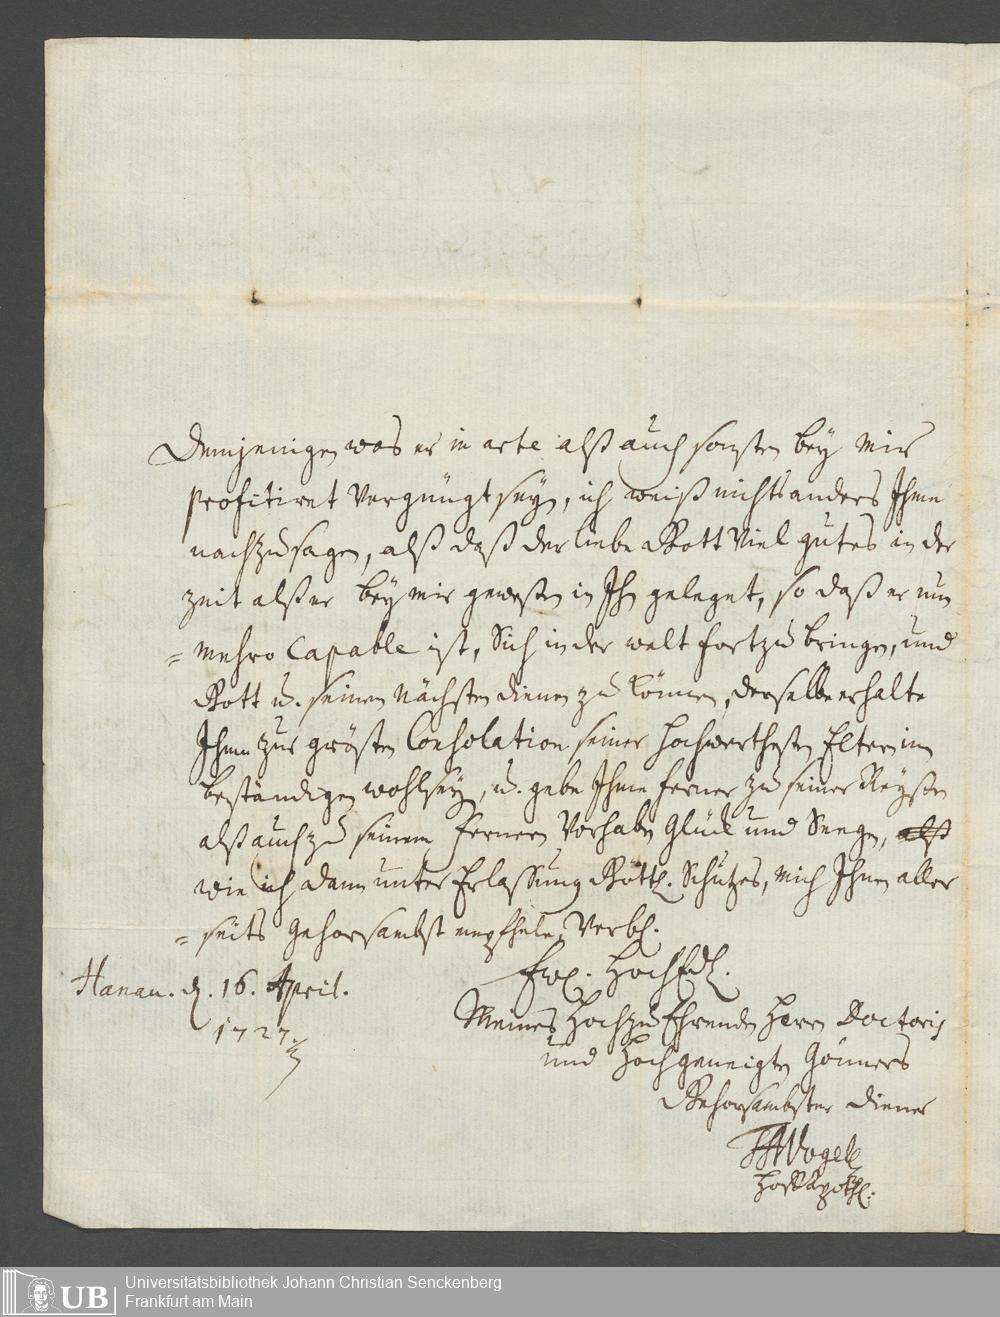 Demjenigen was er in arte alß auch sonsten bey mir
profitiret vergnügt seyn, ich weiß nichts anders Ihme
nachzusagen, alß daß der liebe Gott viel gutes in der
zeit alß er bey mir geweßen in Ihn geleget, so daß er nun
=mehro Capable ist, Sich in der welt fortzubringen, und
Gott u. seinen Nächsten dienen zu können, derselbe erhalte
Ihnen zur grösten Consolation seiner hochwerthesten Eltern im
beständigen wohlseyn, u. gebe Ihme ferner zu seiner Reyße
alß auch zu seinem fernern Vorhaben Glück und Seegen, alß
wie ich dann unter Erlassung Göttl. Schutzes, mich Ihnen aller
=seits gehorsambst empfehle, Verbl.
Ew. HochEdl.
Hanau. d. 16. April.
1727
Meines Hochzu Ehrenden Herrn Doctoris
und Hochgeneigten Gönners
Gehorsambster Diener
Vogel
HoffApothe.
UB
Universitätsbibliothek Johann Christian Senckenberg
Frankfurt am Main